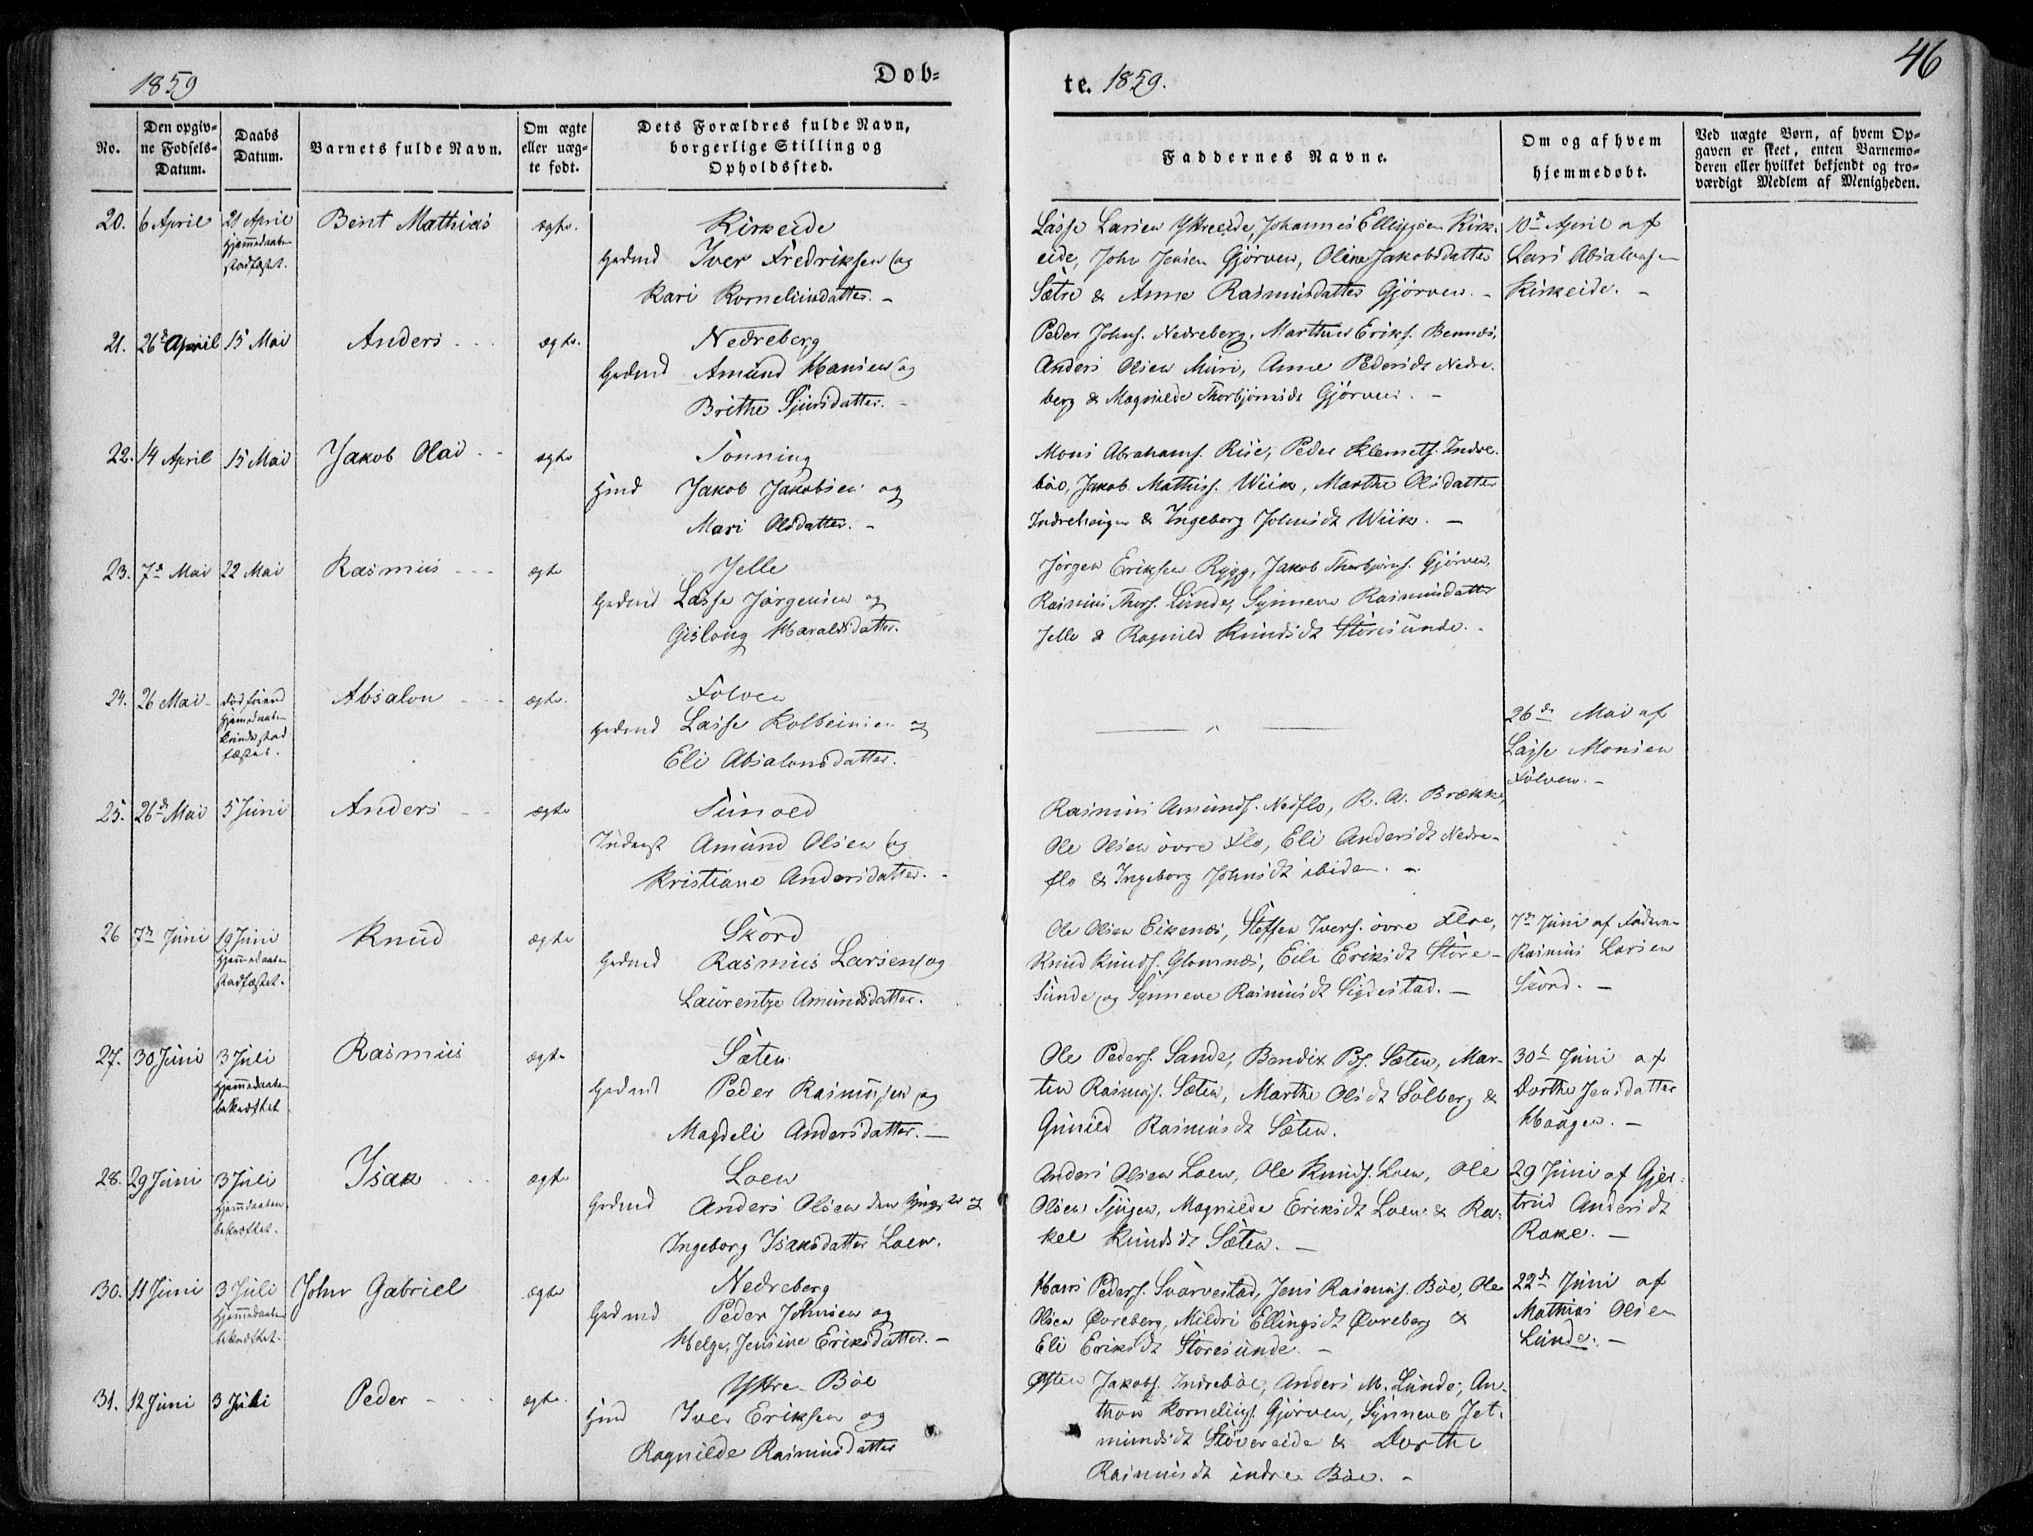 1859
Døb-
te. 1859.
46
No.
Den opgiv-
ne Fødsels-
Datum.
Daabs
Datum.
Barnets fulde Navn.
Om ægte
eller uæg-
te født.
Dets Forældres fulde Navn,
borgerlige Stilling og
Opholdssted.
Faddernes Navne.
Om og af hvem
hjemmedøbt.
Ved uægte Børn, af hvem Op-
gaven er skeet, enten Barnemo-
deren eller hvilket bekjendt og tro-
værdigt Medlem af Menigheden.
20. 6 April 21 April Bent Mathias ægte. Kirkeide
Hjemmedaaben
stadfæstet.
Gdmd Iver Fredriksen og
Kari Korneliusdatter. -
Lasse Larsen Ytreeide, Johannes Ellingsen Kirk-
eide, John Jensen Gjørven, Oline Jakobsdatter
Sætre & Anne Rasmusdatter Gjørven. -
10de April af
Lars Absalonsen
Kirkeide. -
21. 26de April 15 Mai Anders ægte. Nedreberg
Gdmd Amund Hansen og
Brithe Sjursdatter. -
Peder Johns. Nedreberg, Marthus Eriks. Bennæs,
Anders Olsen Muri, Anne Pedersdt Nedre-
berg & Magnilde Thorbjørnsdt Gjørven. -
22. 14 April 15 Mai Jakob Olai ægte Tonning
Hmd Jakob Jakobsen og
Mari Olsdatter. -
Mons Abrahams. Riise, Peder Klemets. Indre-
böe, Jakob Mathiss. Wiik, Marthe Olsdatter
Indrehaugen & Ingeborg Johnsdt Wiik. -
23. 7de Mai 22 Mai Rasmus ægte Jelle
Gdmd Lasse Jørgensen og
Gislaug Haraldsdatter.
Jørgen Eriksen Rygg, Jakob Thorbjørns. Gjørven,
Rasmus Thors. Lunde, Synneve Rasmusdatter
Jelle & Ragnild Knudsdt Storesunde. -
24. 26 Mai Absalon ægte. Folven
død førend
Hjemmedaaben
kunde stad
fæstes.
Gdmd Lasse Kolbeinsen og
Eli Absalonsdatter.
26de Mai af
Lasse Monsen
Folven. -
25. 26de Mai 5 Juni Anders ægte Tunold
Inderst Amund Olsen og
Kristiane Andersdatter. -
Rasmus Amunds. Nedflo, R. A. Brække,
Ole Olsen øvre Flo, Eli Andersdt Nedre-
flo & Ingeborg Johnsdt ibidem. -
26 7de Juni 19 Juni Knud ægte Skord
Hjemmedaaben
stadfæstet.
Gdmd Rasmus Larsen og
Laurentze Amundsdatter.
Ole Olsen Eikenæs, Steffen Ivers. øvre Floe,
Knud Knuds. Glomnæs, Eili Eriksdt Store-
sunde og Synneve Rasmusdt Sigdestad. -
7de Juni af Faderen
Rasmus Larsen
Skord. -
27. 30 Juni 3 Juli Rasmus ægte Sæten
Hjemmedaaben
bekræftet
Gdmd Peder Rasmussen og
Magdeli Andersdatter. -
Ole Peders. Sande, Bendix Ps. Sæten, Mar-
ten Rasmuss. Sæten, Marthe Olsdt Solberg &
Gunild Rasmusdt Sæten.
30te Juni af
Dorthe Jensdatter
Haugen. -
28. 29 Juni 3 Juli Isak ægte Loen
Hjemmedaaben
bekræftet.
Gdmd Anders Olsen den yngre og
Ingeborg Isaksdatter Loen.
Anders Olsen Loen, Ole Knuds. Loen, Ole
Olsen Tjugen, Magnilde Eriksdt Loen & Ra-
kel Knudsdt Sæten. -
29 Juni af Gjer-
trud Andersdt
Rake. -
30. 11 Juni 3 Juli John Gabriel ægte Nedreberg
Hjemmedaaben
bekræftet.
Gdmd Peder Johnsen og
Helge Jensine Eriksdatter. -
Hans Peders. Svarvestad, Jens Rasmuss. Böe, Ole
Olsen Øvreberg, Mildri Ellingsdt Øvreberg &
Eli Eriksdt Storesunde. -
22de Juni af
Mathias Olsen
Lunde. -
31. 12 Juni 3 Juli Peder ægte. Yttre Böe
Hmd Iver Eriksen og
Ragnilde Rasmusdatter
Østen Jakobs. Indreböe, Anders M. Lunde, An-
thon Korneliuss. Gjørven, Synneve Jet-
mundsdt Støvereide & Dorthe
Rasmusdt indre Böe. -